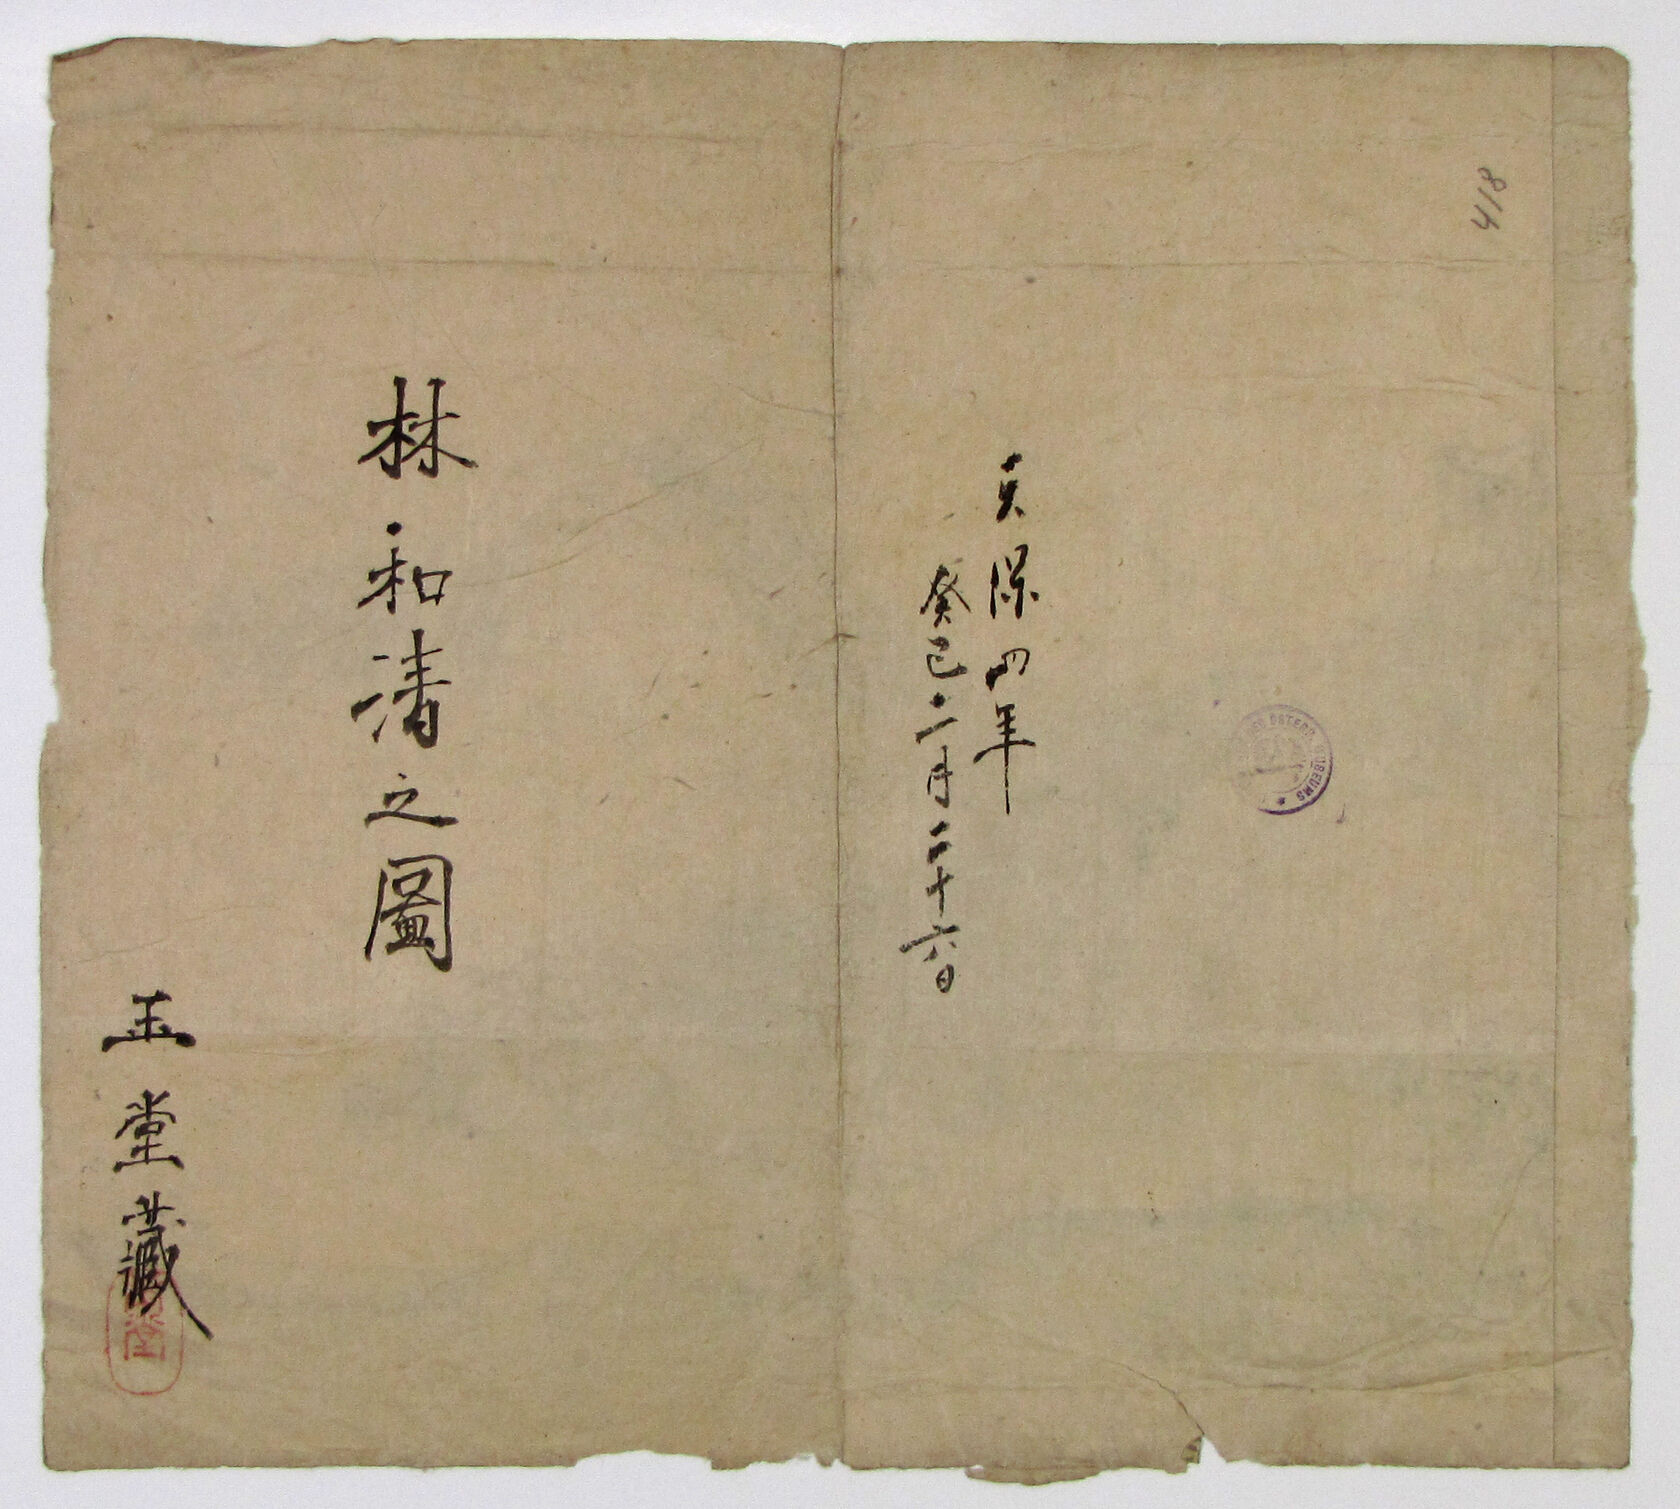 418
天保四年
癸巳二月二十六日
林和清之圖
玉堂藏
ÖSTERR. MUSEUMS